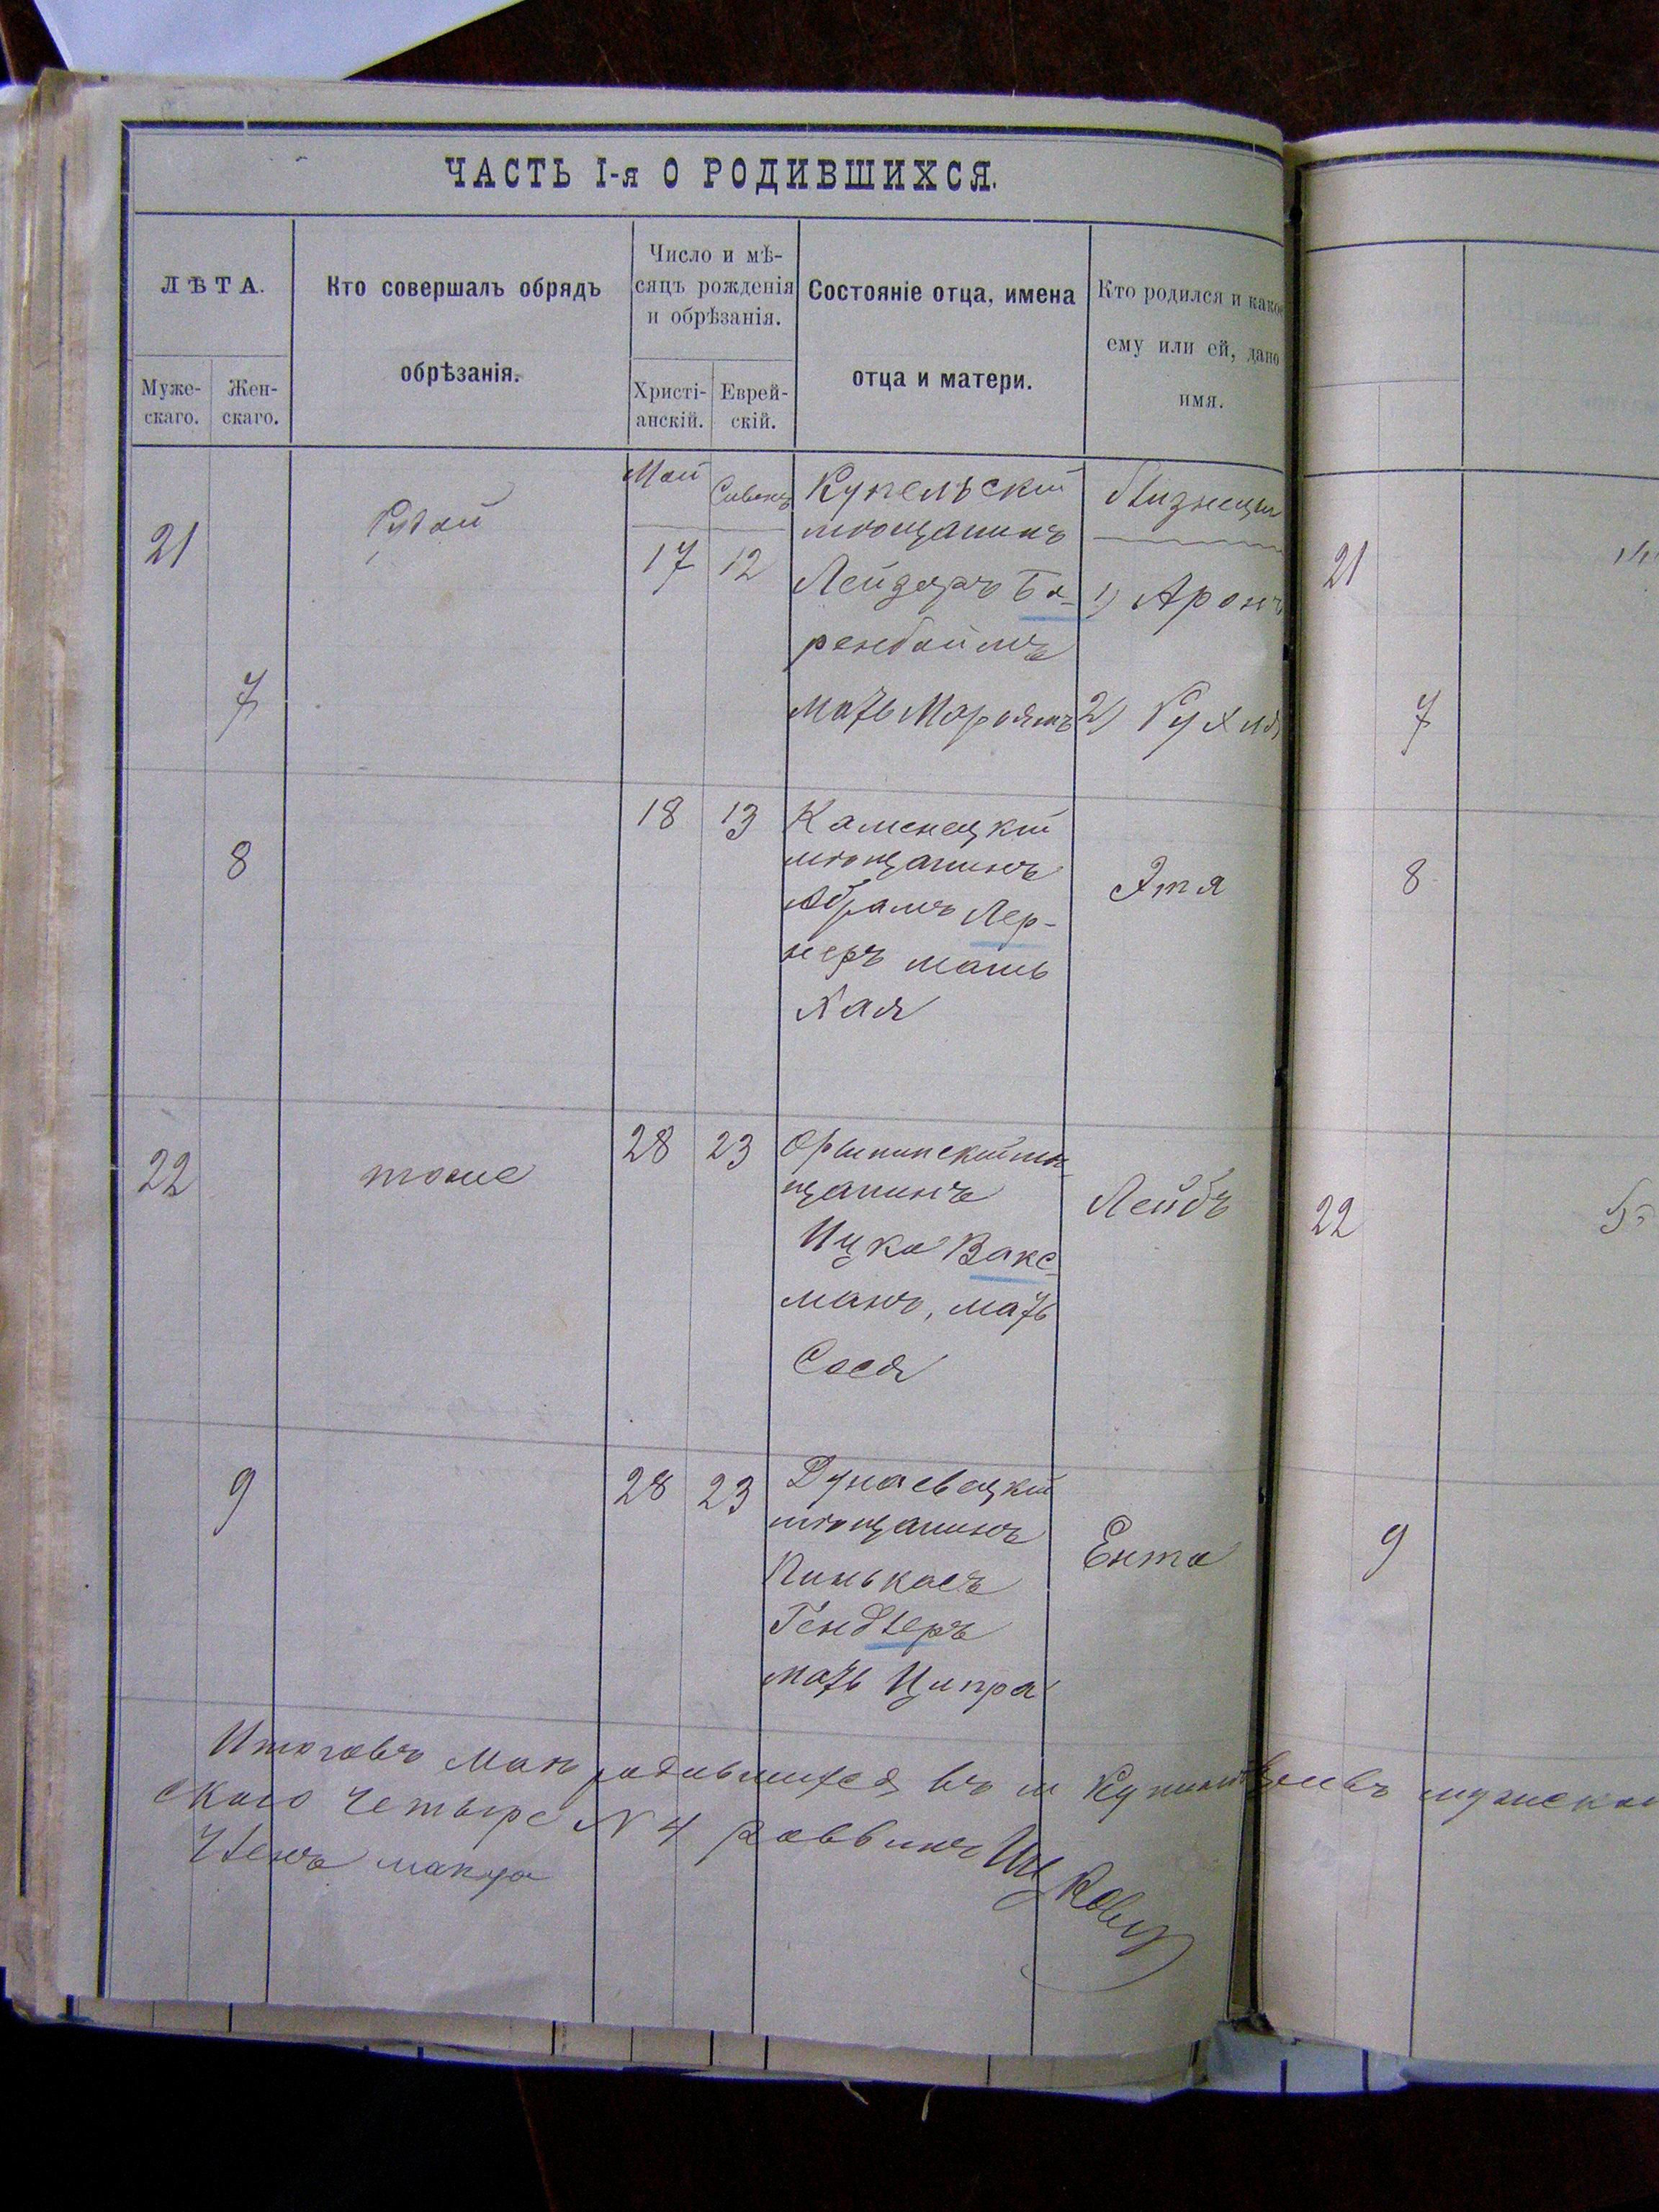 ЧАСТЬ I-я О РОДИВШИХСЯ.
ЛѢТА.
Муже-
скаго.
Жен-
скаго.
Кто совершалъ обрядъ
обрѣзанія.
Число и мѣ-
сяцъ рожденія
и обрѣзанія.
Христі-
анскій.
Еврей-
скій.
Состояніе отца, имена
отца и матери.
Кто родился и какое
ему или ей, дано
имя.
21
7
Рудой
Май
17
Сивонъ
12
Купельскій
мѣщанинъ
Лейзоръ Бе-
ренбоймъ
мать Маріямъ
близнецы
1) Аронъ
2) Рухля
8
18
13
Каменецкій
мѣщанинъ
Абрамъ Лер-
неръ мать
Хая
Этя
22
тоже
28
23
Орынинскій мѣ-
щанинъ
Ицко Вакс-
манъ, мать
Сося
Лейбъ
9
28
23
Дунаевецкій
мѣщанинъ
Пинькасъ
Гендлеръ
мать Ципра
Ента
Итоговъ родившихся въ м
скаго четыре N 4 раввинъ Ицкович
21
7
8
22
9